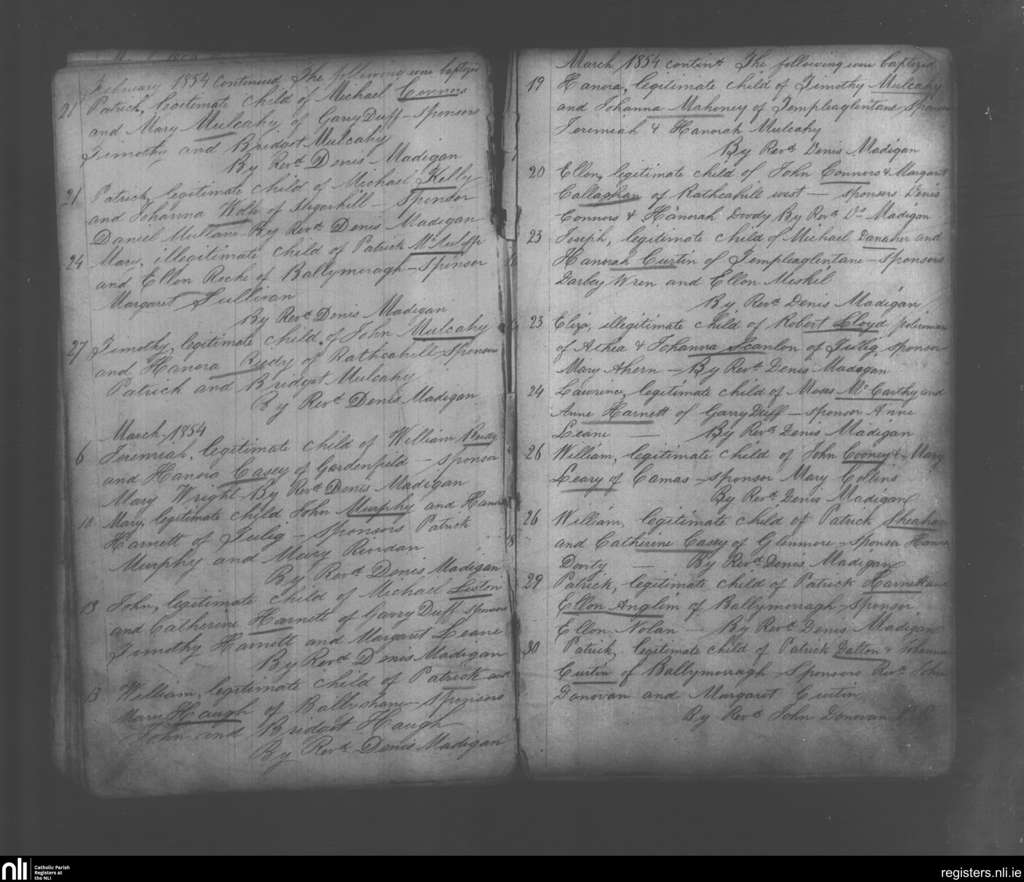 February 1854 Continued The following were baptized
21 Patrick, legitimate child of Michael Connors
and Mary Mulcahy of Garry Duff - Sponsors
Timothy and Bridget Mulcahy
By Revd. Denis Madigan
21 Patrick legitimate child of Michael Kelly
and Johanna Wolfe of Sugarhill - Sponsor
Daniel Mullane By Revd. Denis Madigan
24 Mary, illegitimate child of Patrick
and Ellen Roche of Ballymuragh - Sponsor
Margaret Sullivan
By Revd. Denis Madigan
27 Timothy, legitimate child of John Mulcahy
and Hanora of Rathcahill Sponsors
Patrick and Bridget Mulcahy
By Revd. Denis Madigan
March 1854
6 Jeremiah, legitimate child of William
and Hanora Casey of Gardenfield - sponsor
Mary Wright - By Revd. Denis Madigan
Mary, legitimate child John Murphy and
Harnett of - Sponsors Patrick
Murphy and Mary Riordan
By Revd. Denis Madigan
13 John, legitimate child of Michael Liston
and Catherine Harnett of Garry Duff sponsors
Timothy Harnett and Margaret Leane
By Revd. Denis Madigan
13 William, legitimate child of Patrick and
Mary Haugh of - Sponsors
John and Bridget Haugh
By Revd. Denis Madigan
March 1854 contind. The following were baptized
19 Hanora, legitimate child of Timothy Mulcahy
and Johanna Mahoney of Templeaglentane, Sponsors
Jeremiah & Hanorah Mulcahy
By Revd. Denis Madigan
20 Ellen, legitimate child of John Connors & Margaret
Callaghan of Rathcahill west - sponsors Denis
Connors & Hanorah By Revd. Dn. Madigan
23 Joseph, legitimate child of Michael Danaher and
Hanorah Curtin of Templeaglentane - Sponsors
Darby Wren and Ellen Meskel
By Revd. Denis Madigan
23 Eliza, illegitimate child of Robert Lloyd policeman
of Athea & Johanna Scanlon of sponsor
Mary Ahern - By Revd. Denis Madigan
24 Laurence, legitimate child of Maos McCarthy and
Anne Harnett of Garry Duff - sponsor Anne
Leane - By Revd. Denis Madigan
26 William, legitimate child of John Cooney & Mary
Leary of Camas - sponsor Mary Collins
By Revd. Denis Madigan
26 William, legitimate child of Patrick Sheahan
and Catherine Casey of Glenmore - sponsor Hanora
- By Revd. Denis Madigan
29 Patrick, legitimate child of Patrick
Ellen Anglim of Ballymurragh - Sponsor
Ellen Nolan - By Revd. Denis Madigan
30 Patrick, legitimate child of Patrick Dalton & Johanna
Curtin of Ballymurragh - Sponsors Revd. John
Donovan and Margaret Curtin
By Revd. John Donovan
nli Catholic Parish
Registers at
the NLI
registers.nli.ie